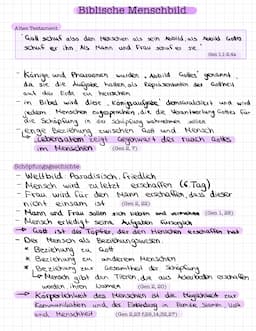 Biblische Menschbild
Altes Testament
"Gott schuf also den Menschen als sein Abbild, als Abbild Gottes
schuf er ihn. Als Mann und Frau schuf er sie."
(Gen 1,1-2,4a
· Könige und Pharaonen wurden "Abbild Gottes" genannt,
da sie die Aufgabe hatten als Repräsentanten der Gottheit
auf der Erde zu herrschen
· in Bibel wird diese "Königsaufgabe" demokratisiert und wird
jedem Menschen zugesprochen, die die Verantwortung Gottes für
die Schöpfung in der Schöpfung wahrnehmen sollen
· enge Beziehung zwischen Gott und Mensch
→ Lebensatem zeigt Gegenwart des Hauch Gottes
im Menschen (Gen 2, 7)
Schöpfungsgeschichte
- Weltbild: Paradisisch, friedlich
- Mensch wird zuletzt erschaffen (6. Tag)
- Frau wird für den Mann erschaffen, dass dieser
nicht einsam ist (Gen 2, 22)
- Mann und Frau sollen sich lieben und vermehren (Gen 1, 28)
- Mensch erledigt seine Aufgaben fürsorglich
→ Gott ist der Töpfer, der den Menschen erschaffen hat
- Der Mensch als Beziehungswesen:
* Beziehung zu Gott
* Beziehung zu anderem Menschen
* Beziehung zur Gesamtheit der Schöpfung
→ Mensch gibt den Tieren, die aus Ackerboden erschaffen
worden, ihren Namen (Gen 2, 20)
→ Körperlichkeit des Menschen ist die Möglichkeit zur
Kommunikation und der Einbindung in Familie, Stamm, Volk
und Menschheit